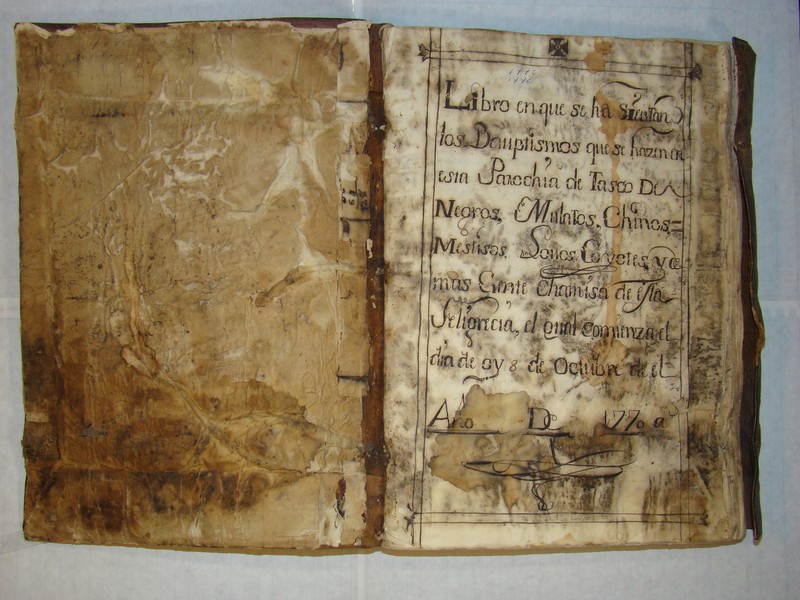 Libro en que se ha
los Bauptismos que se hazen en
esta Parochia de Tasco De
Negros, Mulatos, Chinos,=
Mestisos, Lovos, Coyotes, y de
mas Gente Chamisa de esta
Feligrecia, el qual comienza el
dia de oy 8 de Octubre de el
Año De 1770 a